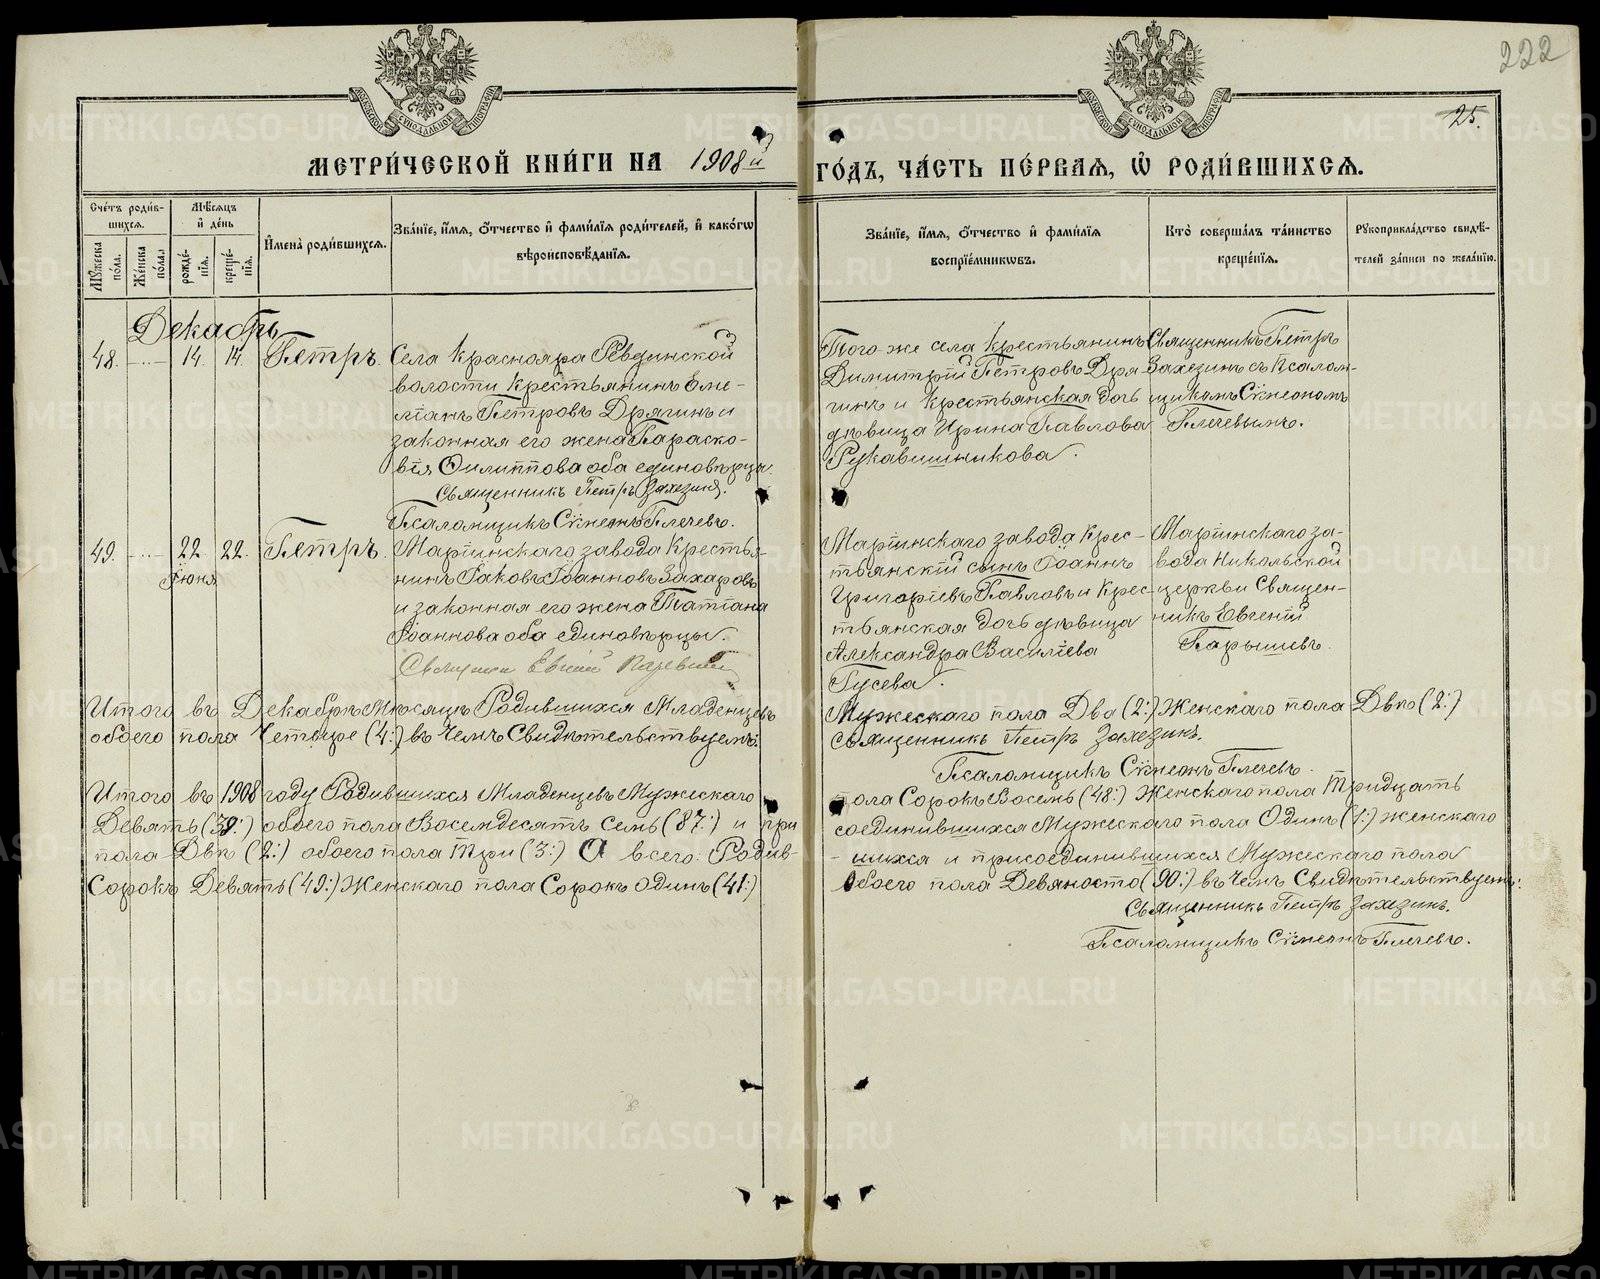 222
25.
МЕТРИ́ЧЕСКОЙ КНИ́ГИ НА 1908й ГО́ДЪ, ЧА́СТЬ ПЕ́РВАЯ, Ѡ҆ РОДИ́ВШИХСЯ.
Сче́тъ роди́в-
шихся.
Мꙋ́жеска по́ла.
Же́нска по́ла.
Мѣ́сяцъ
и҆ де́нь
рожде́-
нїѧ.
креще́-
нїѧ.
И҆мена̀ роди́вшихся.
Зва́нїе, и҆́мѧ, ѻ҆́тчество и҆ фами́лїѧ роди́телей, и҆ како́гѡ
вѣроисповѣ́данїѧ.
Зва́нїе, и҆́мѧ, ѻ҆́тчество и҆ фами́лїѧ
воспрїе́мникѡвъ.
Кто̀ соверша́лъ та́инство
креще́нїѧ.
Рꙋкоприкла́дство свидѣ́-
телей за́писи по жела́нїю.
Декабрь
48. 14. 14. Петръ.
Села Краснояра Ревдинской
волости крестьянинъ Еме-
лїанъ Петровъ Дрягинъ и
законная его жена Параско-
вїя Филиппова оба единовѣрцы.
Священникъ Петръ Захезинъ.
Псаломщикъ Сѵмеонъ Плечевъ.
Того-же села крестьянинъ
Димитрїй Петровъ Дря-
гинъ и крестьянская дочь
дѣвица Ирина Павлова
Рукавишникова.
Священникъ Петръ
Захезинъ съ Псалом-
щикомъ Сѵмеономъ
Плечевымъ.
49. 22 22. Петръ.
Іюня
Марїинскаго завода крестья-
нинъ Іаковъ Іоанновъ Захаровъ
и законная его жена Татїана
Іоаннова оба единовѣрцы.
Марїинскаго завода крес-
тьянскїй сынъ Іоаннъ
Григорїевъ Павловъ и крес-
тьянская дочь дѣвица
Александра Василїева
Гусева.
Марїинскаго за-
вода Никольской
церкви Священ-
никъ Евгенїй
Парышевъ.
Итого въ Декабрѣ Мѣсяцѣ Родившихся Младенцевъ Мужескаго пола Два (2:) Женскаго пола Двѣ (2:)
обоего пола Четыре (4:) въ чемъ Свидѣтельствуемъ: Священникъ Петръ Захезинъ.
Псаломщикъ Сѵмеонъ Плечевъ.
Итого въ 1908 году Родившихся Младенцевъ Мужескаго пола Сорокъ Восемь (48:) Женскаго пола Тридцать
Девять (39:) обоего пола Восемдесятъ семь (87:) и при соединившихся Мужескаго пола Одинъ (1:) женскаго
пола Двѣ (2:) обоего пола три (3:) А всего: Родив- -шихся и присоединившихся Мужескаго пола
Сорокъ Девять (49:) Женскаго пола Сорокъ одинъ (41:) Обоего пола Девяносто (90:) въ чемъ Свидѣтельствуемъ:
Священникъ Петръ Захезинъ.
Псаломщикъ Сѵмеонъ Плечевъ.
METRIKI.GASO-URAL.RU